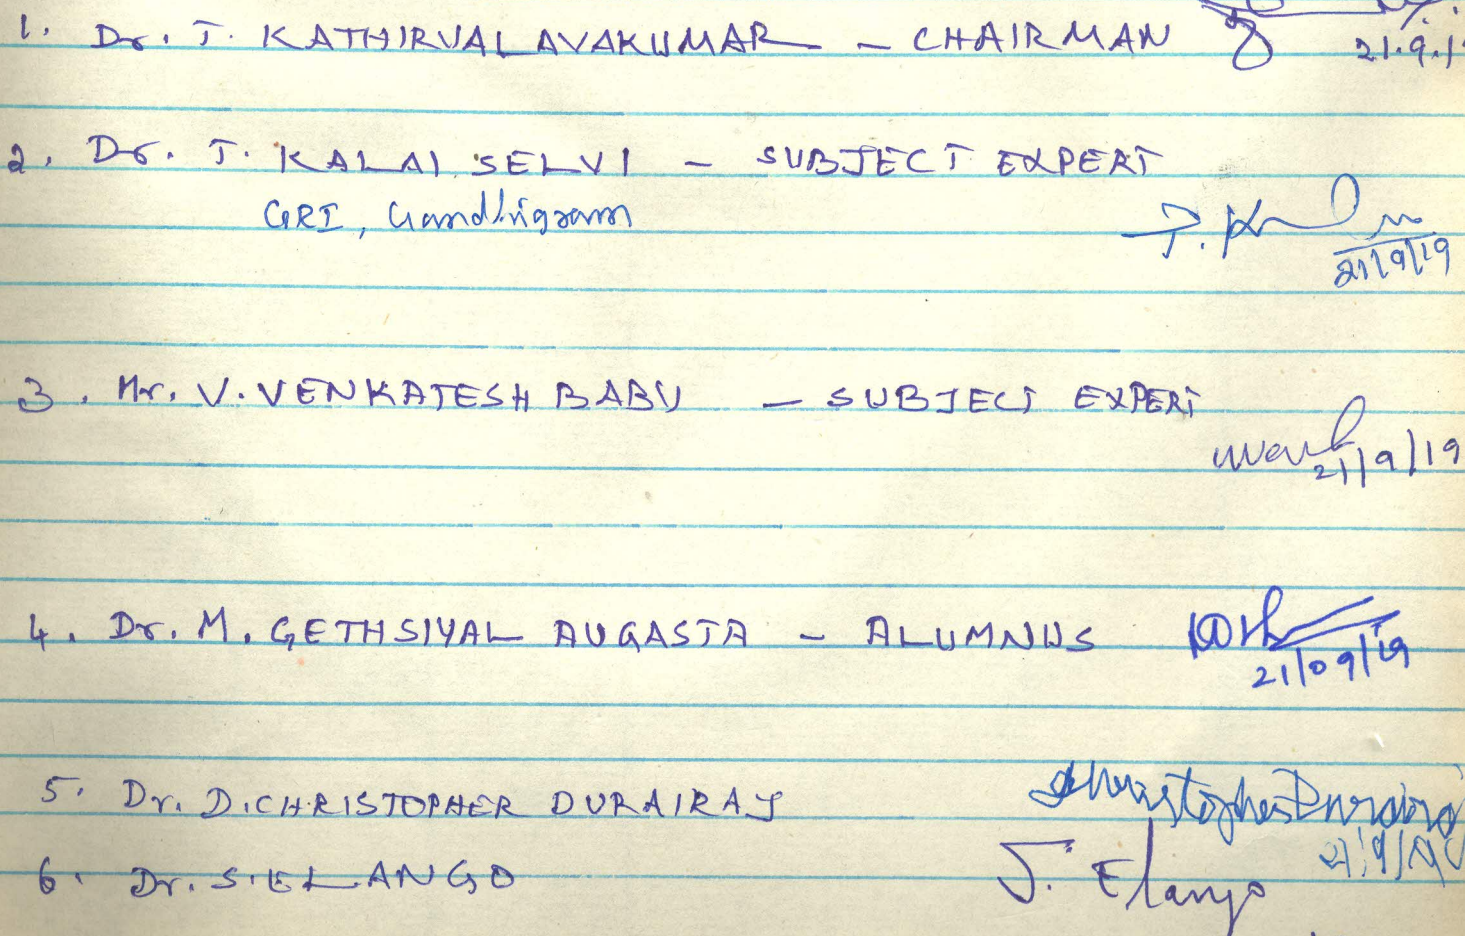 1. Dr. T. KATHIRVALAVAKUMAR - CHAIRMAN
21.9.1
2. Dr. T. KALAI SELVI - SUBJECT EXPERT
GRI, Gandhigram
21/9/19
3. Mr. V. VENKATESH BABU - SUBJECT EXPERT
21/9/19
4. Dr. M. GETHSIYAL AUGASTA - ALUMNUS
21/09/19
5. Dr. D. CHRISTOPHER DURAIRAJ
Christopher Durairaj
21/9/19
6. Dr. S. ELANGO S. Elango